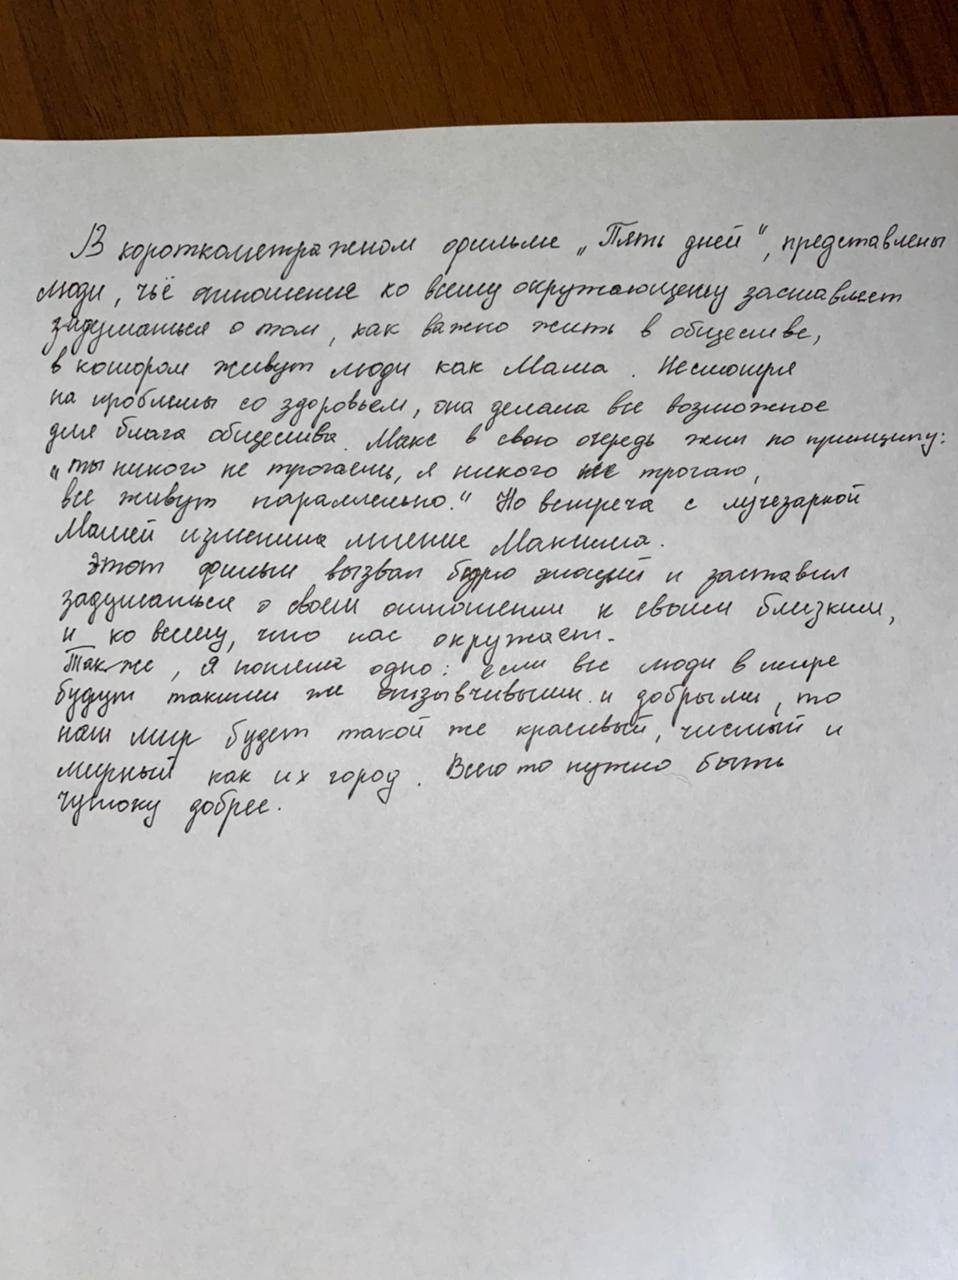 В короткометражном фильме „Пять дней“, представлены
люди, чьё отношение ко всему окружающему заставляет
задуматься о том, как важно жить в обществе,
в котором живут люди как Маша. Несмотря
на проблемы со здоровьем, она делала все возможное
для блага общества. Макс в свою очередь жил по принципу:
„ты никого не трогаешь, я никого не трогаю,
все живут параллельно.“ Но встреча с лучезарной
Машей изменила мнение Максима.
Этот фильм вызвал бурю эмоций и заставил
задуматься о своем отношении к своим близким,
и ко всему, что нас окружает.
Также, я поняла одно: если все люди в мире
будут такими же отзывчивыми и добрыми, то
наш мир будет такой же красивый, чистый и
мирный как их город. Всего то нужно быть
чуточку добрее.